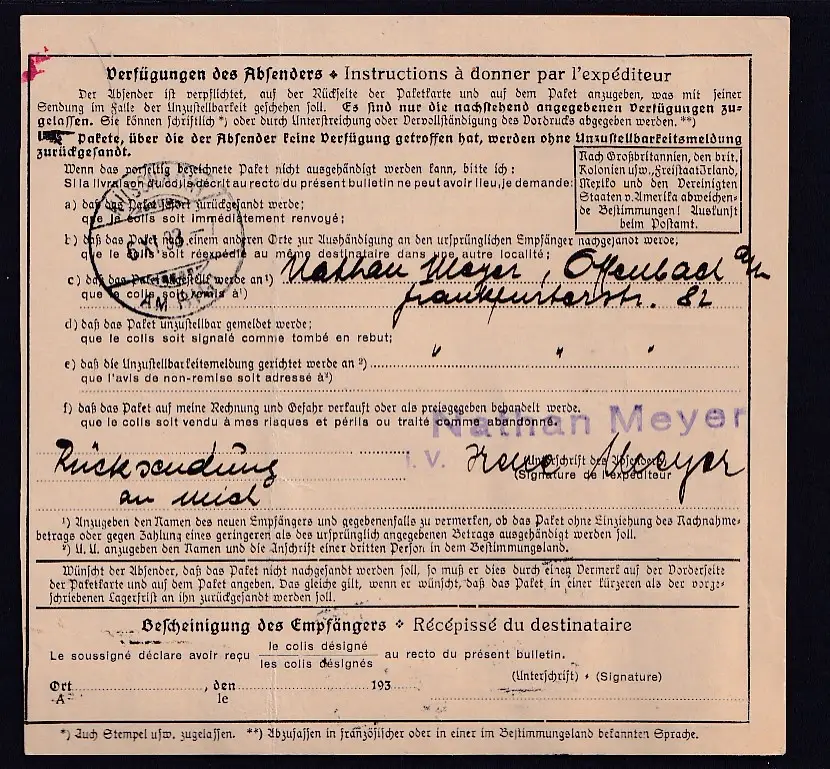 Verfügungen des Absenders ⬥ Instructions à donner par l'expéditeur
Der Absender ist verpflichtet, auf der Rückseite der Paketkarte und auf dem Paket anzugeben, was mit seiner
Sendung im Falle der Unzustellbarkeit geschehen soll. Es sind nur die nachstehend angegebenen Verfügungen zu-
gelassen. Sie können schriftlich *) oder durch Unterstreichung oder Vervollständigung des Vordrucks abgegeben werden. **)
Pakete, über die der Absender keine Verfügung getroffen hat, werden ohne Unzustellbarkeitsmeldung
zurückgesandt.
Wenn das vorseitig bezeichnete Paket nicht ausgehändigt werden kann, bitte ich:
Si la livraison du colis décrit au recto du présent bulletin ne peut avoir lieu, je demande:
Nach Großbritannien, den brit.
Kolonien usw., Freistaat Irland,
Mexiko und den Vereinigten
Staaten v. Amerika abweichen-
de Bestimmungen! Auskunft
beim Postamt.
a) daß das Paket sofort zurückgesandt werde;
que le colis soit immédiatement renvoyé;
b) daß das Paket nach einem anderen Orte zur Aushändigung an den ursprünglichen Empfänger nachgesandt werde;
que le colis soit réexpédié au même destinataire dans une autre localité;
c) daß das Paket zugestellt werde an ¹) Nathan Meyer, Offenbach a/m
que le colis soit remis à ¹) Frankfurterstr. 82
d) daß das Paket unzustellbar gemeldet werde;
que le colis soit signalé comme tombé en rebut;
e) daß die Unzustellbarkeitsmeldung gerichtet werde an ²) " " "
que l'avis de non-remise soit adressé à ²)
f) daß das Paket auf meine Rechnung und Gefahr verkauft oder als preisgegeben behandelt werde.
que le colis soit vendu à mes risques et périls ou traité comme abandonné.
Nathan Meyer
Rücksendung
i. V. Meyer
(Unterschrift des Absenders)
(Signature de l'expéditeur
an mich
¹) Anzugeben den Namen des neuen Empfängers und gegebenenfalls zu vermerken, ob das Paket ohne Einziehung des Nachnahme-
betrags oder gegen Zahlung eines geringeren als des ursprünglich angegebenen Betrags ausgehändigt werden soll.
²) U. U. anzugeben den Namen und die Anschrift einer dritten Person in dem Bestimmungsland.
Wünscht der Absender, daß das Paket nicht nachgesandt werden soll, so muß er dies durch einen Vermerk auf der Vorderseite
der Paketkarte und auf dem Paket angeben. Das gleiche gilt, wenn er wünscht, daß das Paket in einer kürzeren als der vorge-
schriebenen Lagerfrist an ihn zurückgesandt werden soll.
Bescheinigung des Empfängers ⬥ Récépissé du destinataire
Le soussigné déclare avoir reçu le colis désigné / les colis désignés au recto du présent bulletin.
(Unterschrift) ⬥ (Signature)
Ort , den 193
A le
*) Auch Stempel usw. zugelassen. **) Abzufassen in französischer oder in einer im Bestimmungsland bekannten Sprache.